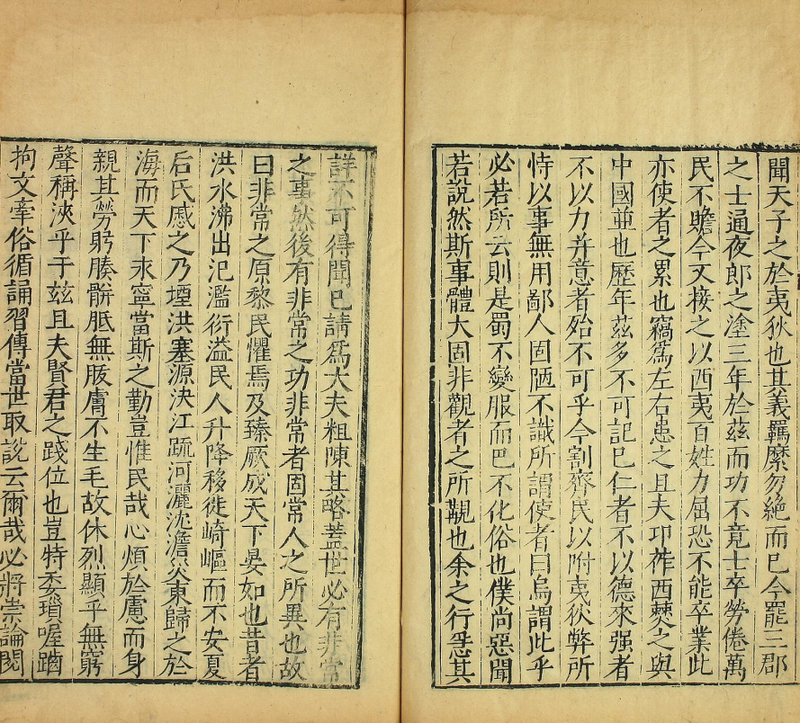 聞天子之於夷狄也其義羈縻勿絶而已今罷三郡
之士通夜郎之塗三年於兹而功不竟士卒勞倦萬
民不贍今又接之以西夷百姓力屈恐不能卒業此
亦使者之累也竊爲左右患之且夫卭莋西僰之與
中國並也歷年茲多不可記已仁者不以德來强者
不以力并意者殆不可乎今割齊民以附夷狄弊所
恃以事無用鄙人固陋不識所謂使者曰烏謂此乎
必若所云則是蜀不變服而巴不化俗也僕尚惡聞
若說然斯事體大固非觀者之所覯也余之行急其
詳不可得聞已請爲大夫粗陳其略蓋世必有非常
之事然後有非常之功非常者固常人之所異也故
曰非常之原黎民懼焉及臻厥成天下晏如也昔者
洪水沸出氾濫衍溢民人升降移徙崎嶇而不安夏
后氏慼之乃堙洪塞源決江疏河灑沈澹災東歸之於
海而天下永寧當斯之勤豈惟民哉心煩於慮而身
親其勞躬腠骿胝無胈膚不生毛故休烈顯乎無窮
聲稱浹乎于兹且夫賢君之踐位也豈特委瑣喔齱
拘文牽俗循誦習傳當世取說云爾哉必將崇論閎